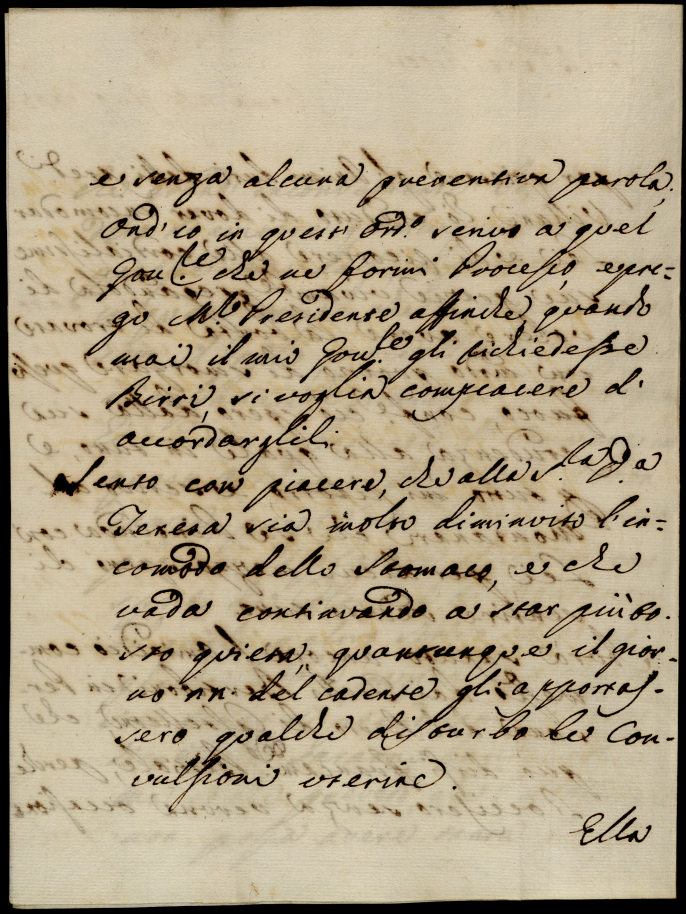 e senza alcuna preventiva parola,
Ond'io in quest'Ord.o scrivo a quel
Gov.le che ne formi Processo, e pre=
go Mr. Presidente affinche, quando
mai il mio Gov.le gli richiedesse
Birri, si voglia compiacere di
accordarglili.
Sento con piacere, che alla S.la D.a
Teresa sia molto diminuito l'in=
comodo dello Stomaco, e che
vada continuando a star più to.
sto quieta, quantunque il gior-
no del cadente gli apportas-
sero qualche disturbo le Con-
vulsioni uterine.
Ella